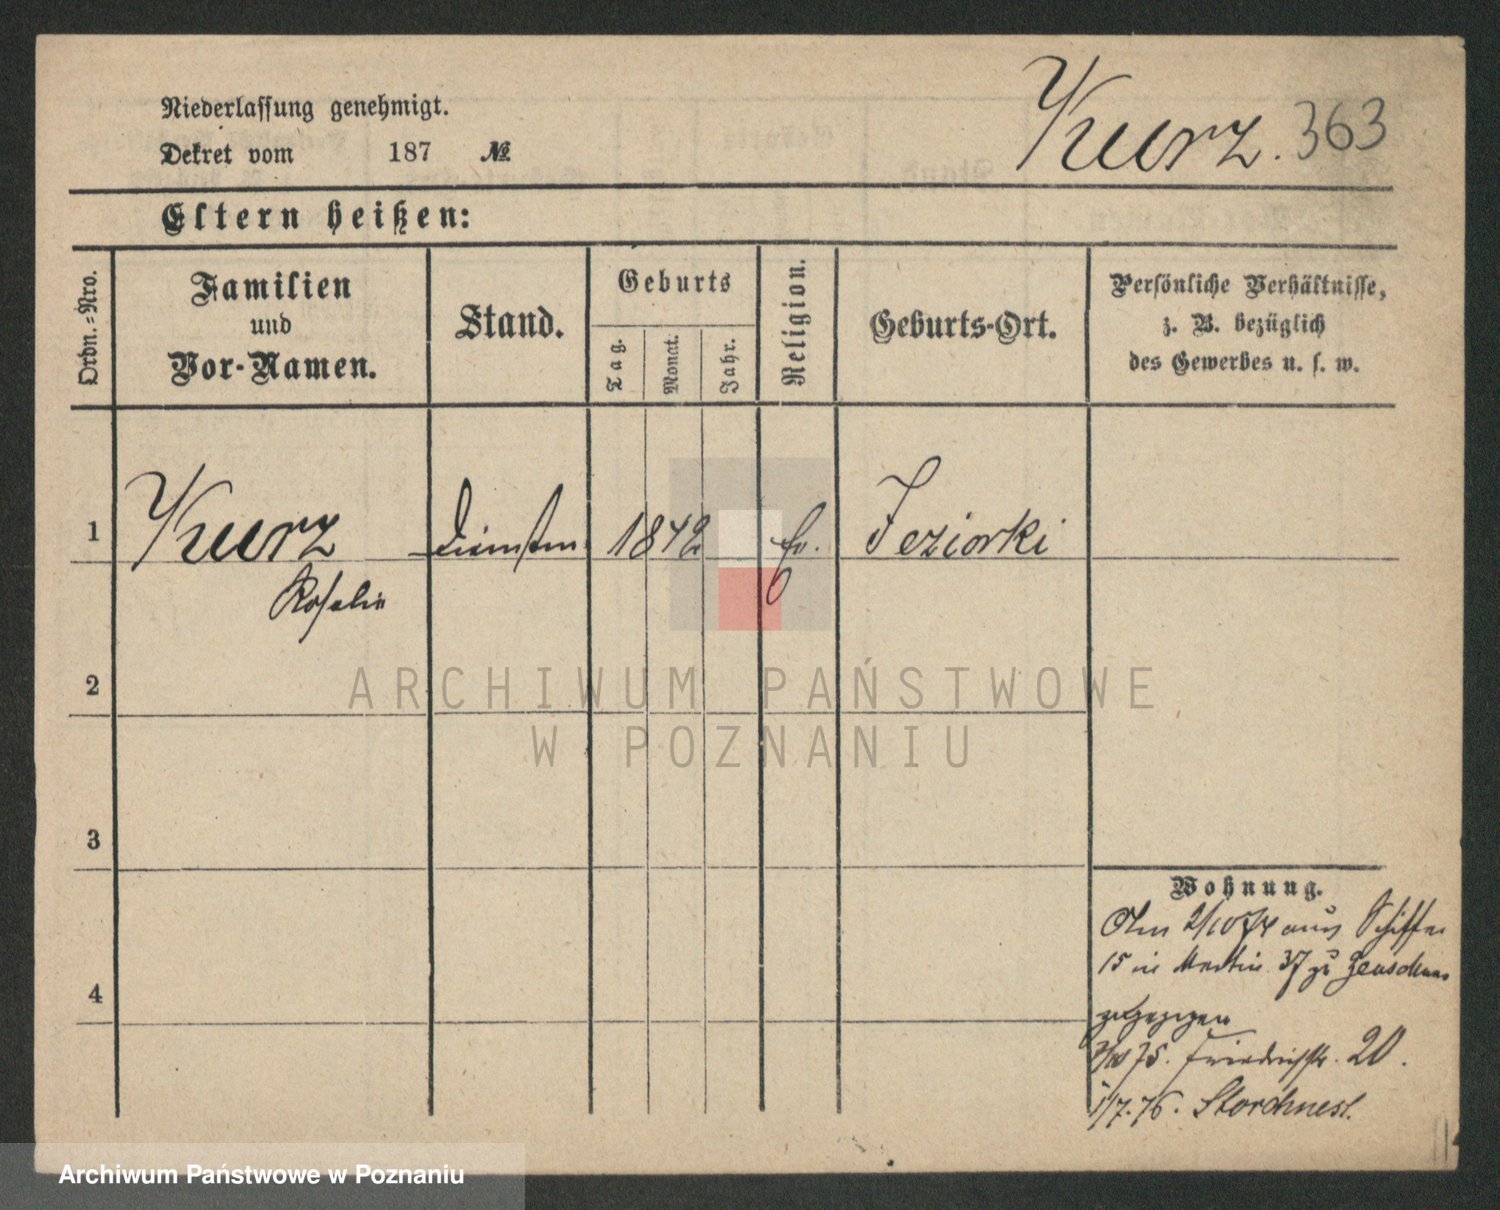 Niederlassung genehmigt.
Dekret vom 187 №
Kurz. 363
Eltern heißen:
Ordn.-Nro.
Familien
und
Vor-Namen.
Stand.
Geburts
Tag.
Monat.
Jahr.
Religion.
Geburts-Ort.
Persönliche Verhältnisse,
z. B. bezüglich
des Gewerbes u. s. w.
1 Kurz 1842 Jeziorki
Rosalie
2
3
4
ARCHIWUM PAŃSTWOWE
W POZNANIU
Wohnung.
2/10 74 aus Schiffer
15 in Martin 37 zu
zugezogen
75. Friedrichstr. 20.
1/7.76. Storchnest.
Archiwum Państwowe w Poznaniu